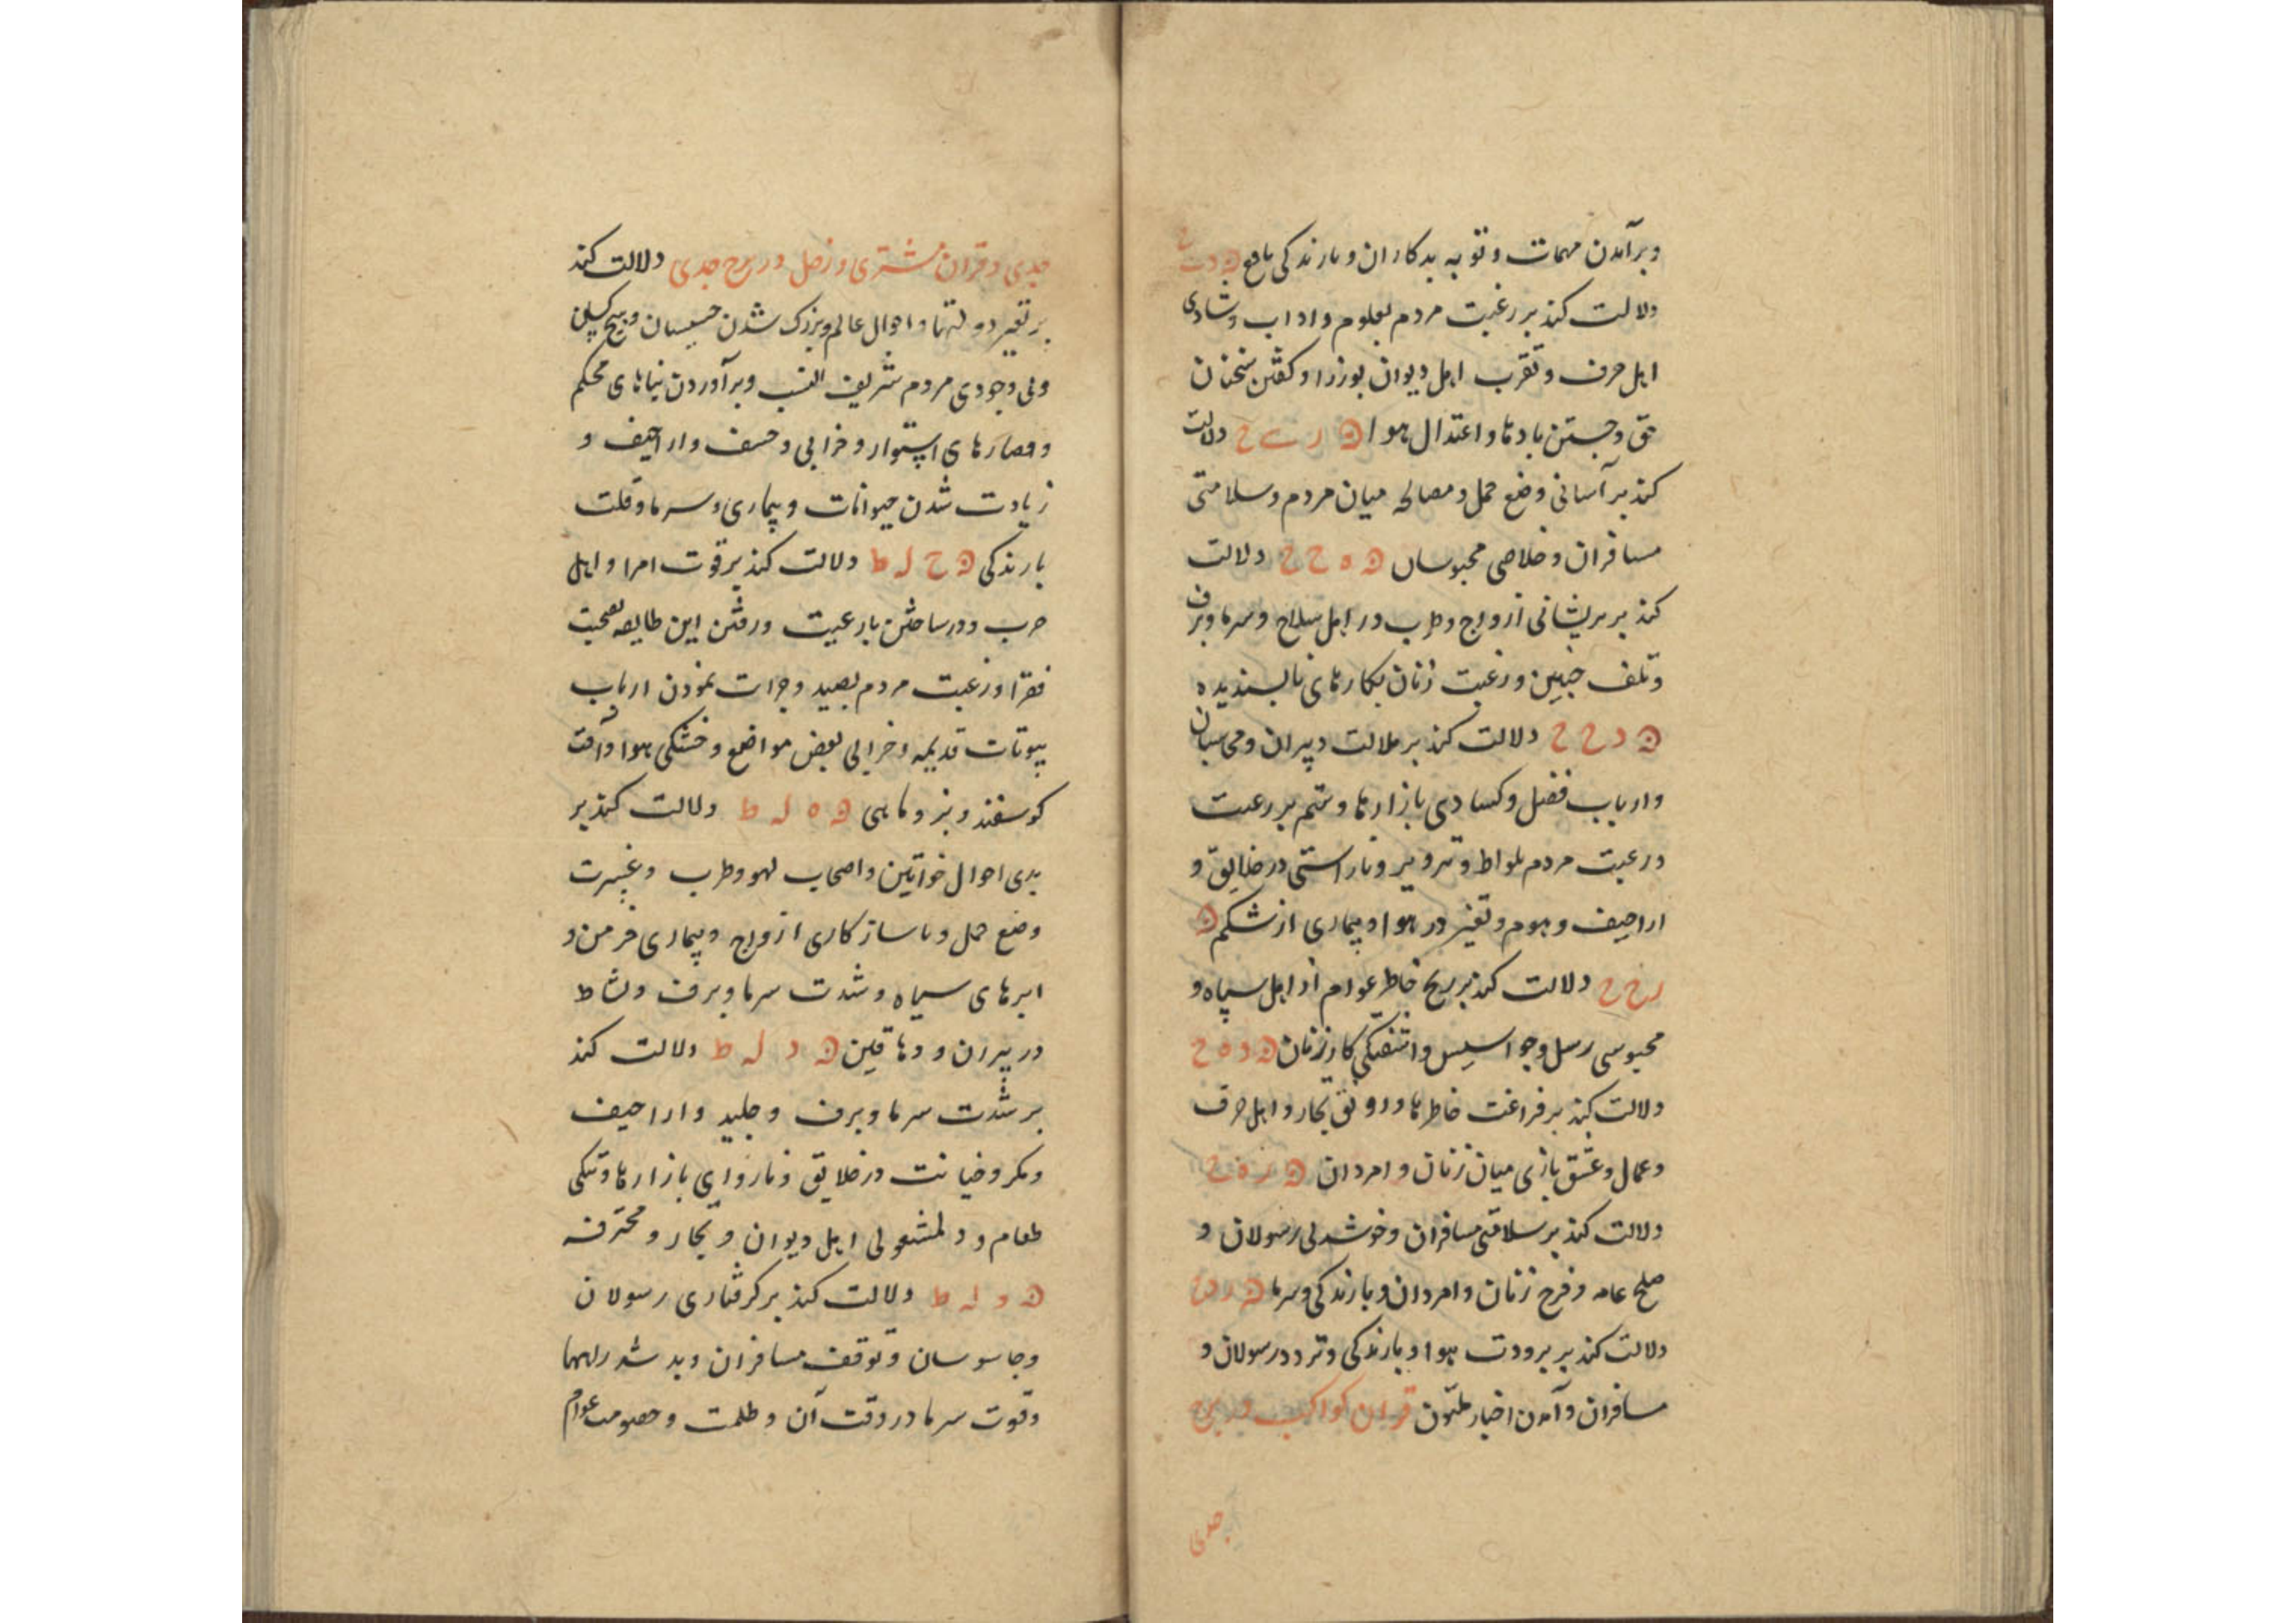 وبرآمدن مهمات و توبه بدکاران و بارندکی نافع
دلالت کند بر رغبت مردم بعلوم و اداب و شادی
اهل حرف و تقرب اهل دیوان بوزرا و کفتن سخنان
حق و جستن بادها و اعتدال هوا ں ر ے ح دلالت
کند بر آسانی وضع حمل و مصالحه میان مردم و سلامتی
مسافران و خلاصی محبوسان ں ه ح ح دلالت
کند بر پریشانی ازواج و طرب در اهل سلاح و سرما و برف
و تلف جنین و رغبت زنان بکارهای ناپسندیده
ں د ح ح دلالت کند بر ملالت دبیران و محاسبان
و ارباب فضل و کسادی بازارها و ستم بر رعیت
و رغبت مردم بلواط و تزویر و ناراستی در خلایق و
اراجیف و هموم و تغیر در هوا و بیماری از شکم ں
ر ح ح دلالت کند بر رنج خاطر عوام از اهل سپاه و
محبوسی رسل و جواسیس و اشفتکی کار زنان ں د ه ح
دلالت کند بر فراغت خاطرها و رونق تجار و اهل حرف
و عمال و عشق بازی میان زنان و امردان ں ر ه ح
دلالت کند بر سلامتی مسافران و خوشدلی رسولان و
صلح عامه و فرح زنان و امردان و بارندکی و سرما ں ر د ح
دلالت کند بر برودت هوا و بارندکی و تردد رسولان و
مسافران و آمدن اخبار ملون قران کواکب در برج
جدی
جدی و قران مشتری و زحل در برج جدی دلالت کند
بر تغیر دولتها و احوال عالم و بزرک شدن خسیسان و
و بی وجودی مردم شریف النسب و برآوردن بناهای محکم
و حصارهای استوار و خرابی و خسف و اراجیف و
زیادت شدن حیوانات و بیماری و سرما و قلت
بارندکی ں ح ل ط دلالت کند بر قوت امرا و اهل
حرب و درساختن با رعیت و رفتن این طایفه بصحبت
فقرا و رغبت مردم بصید و جرات نمودن ارباب
بیوتات قدیمه و خرابی بعض مواضع و خشکی هوا و آفت
کوسفند و بز و ماهی ں ه ل ط دلالت کند بر
بدی احوال خواتین و اصحاب لهو و طرب و عسرت
وضع حمل و ناسازکاری ازواج و بیماری مزمن و
ابرهای سیاه و شدت سرما و برف و نشاط
در پیران و دهاقین ں د ل ط دلالت کند
بر شدت سرما و برف و جلید و اراجیف
و مکر و خیانت در خلایق و ناروایی بازارها و تنکی
طعام و دلمشغولی اهل دیوان و تجار و محترفه
ں ر ل ط دلالت کند بر کرفتاری رسولان
و جاسوسان و توقف مسافران و بد شدن راهها
و قوت سرما در وقت آن و ظلمت و خصومت عوام